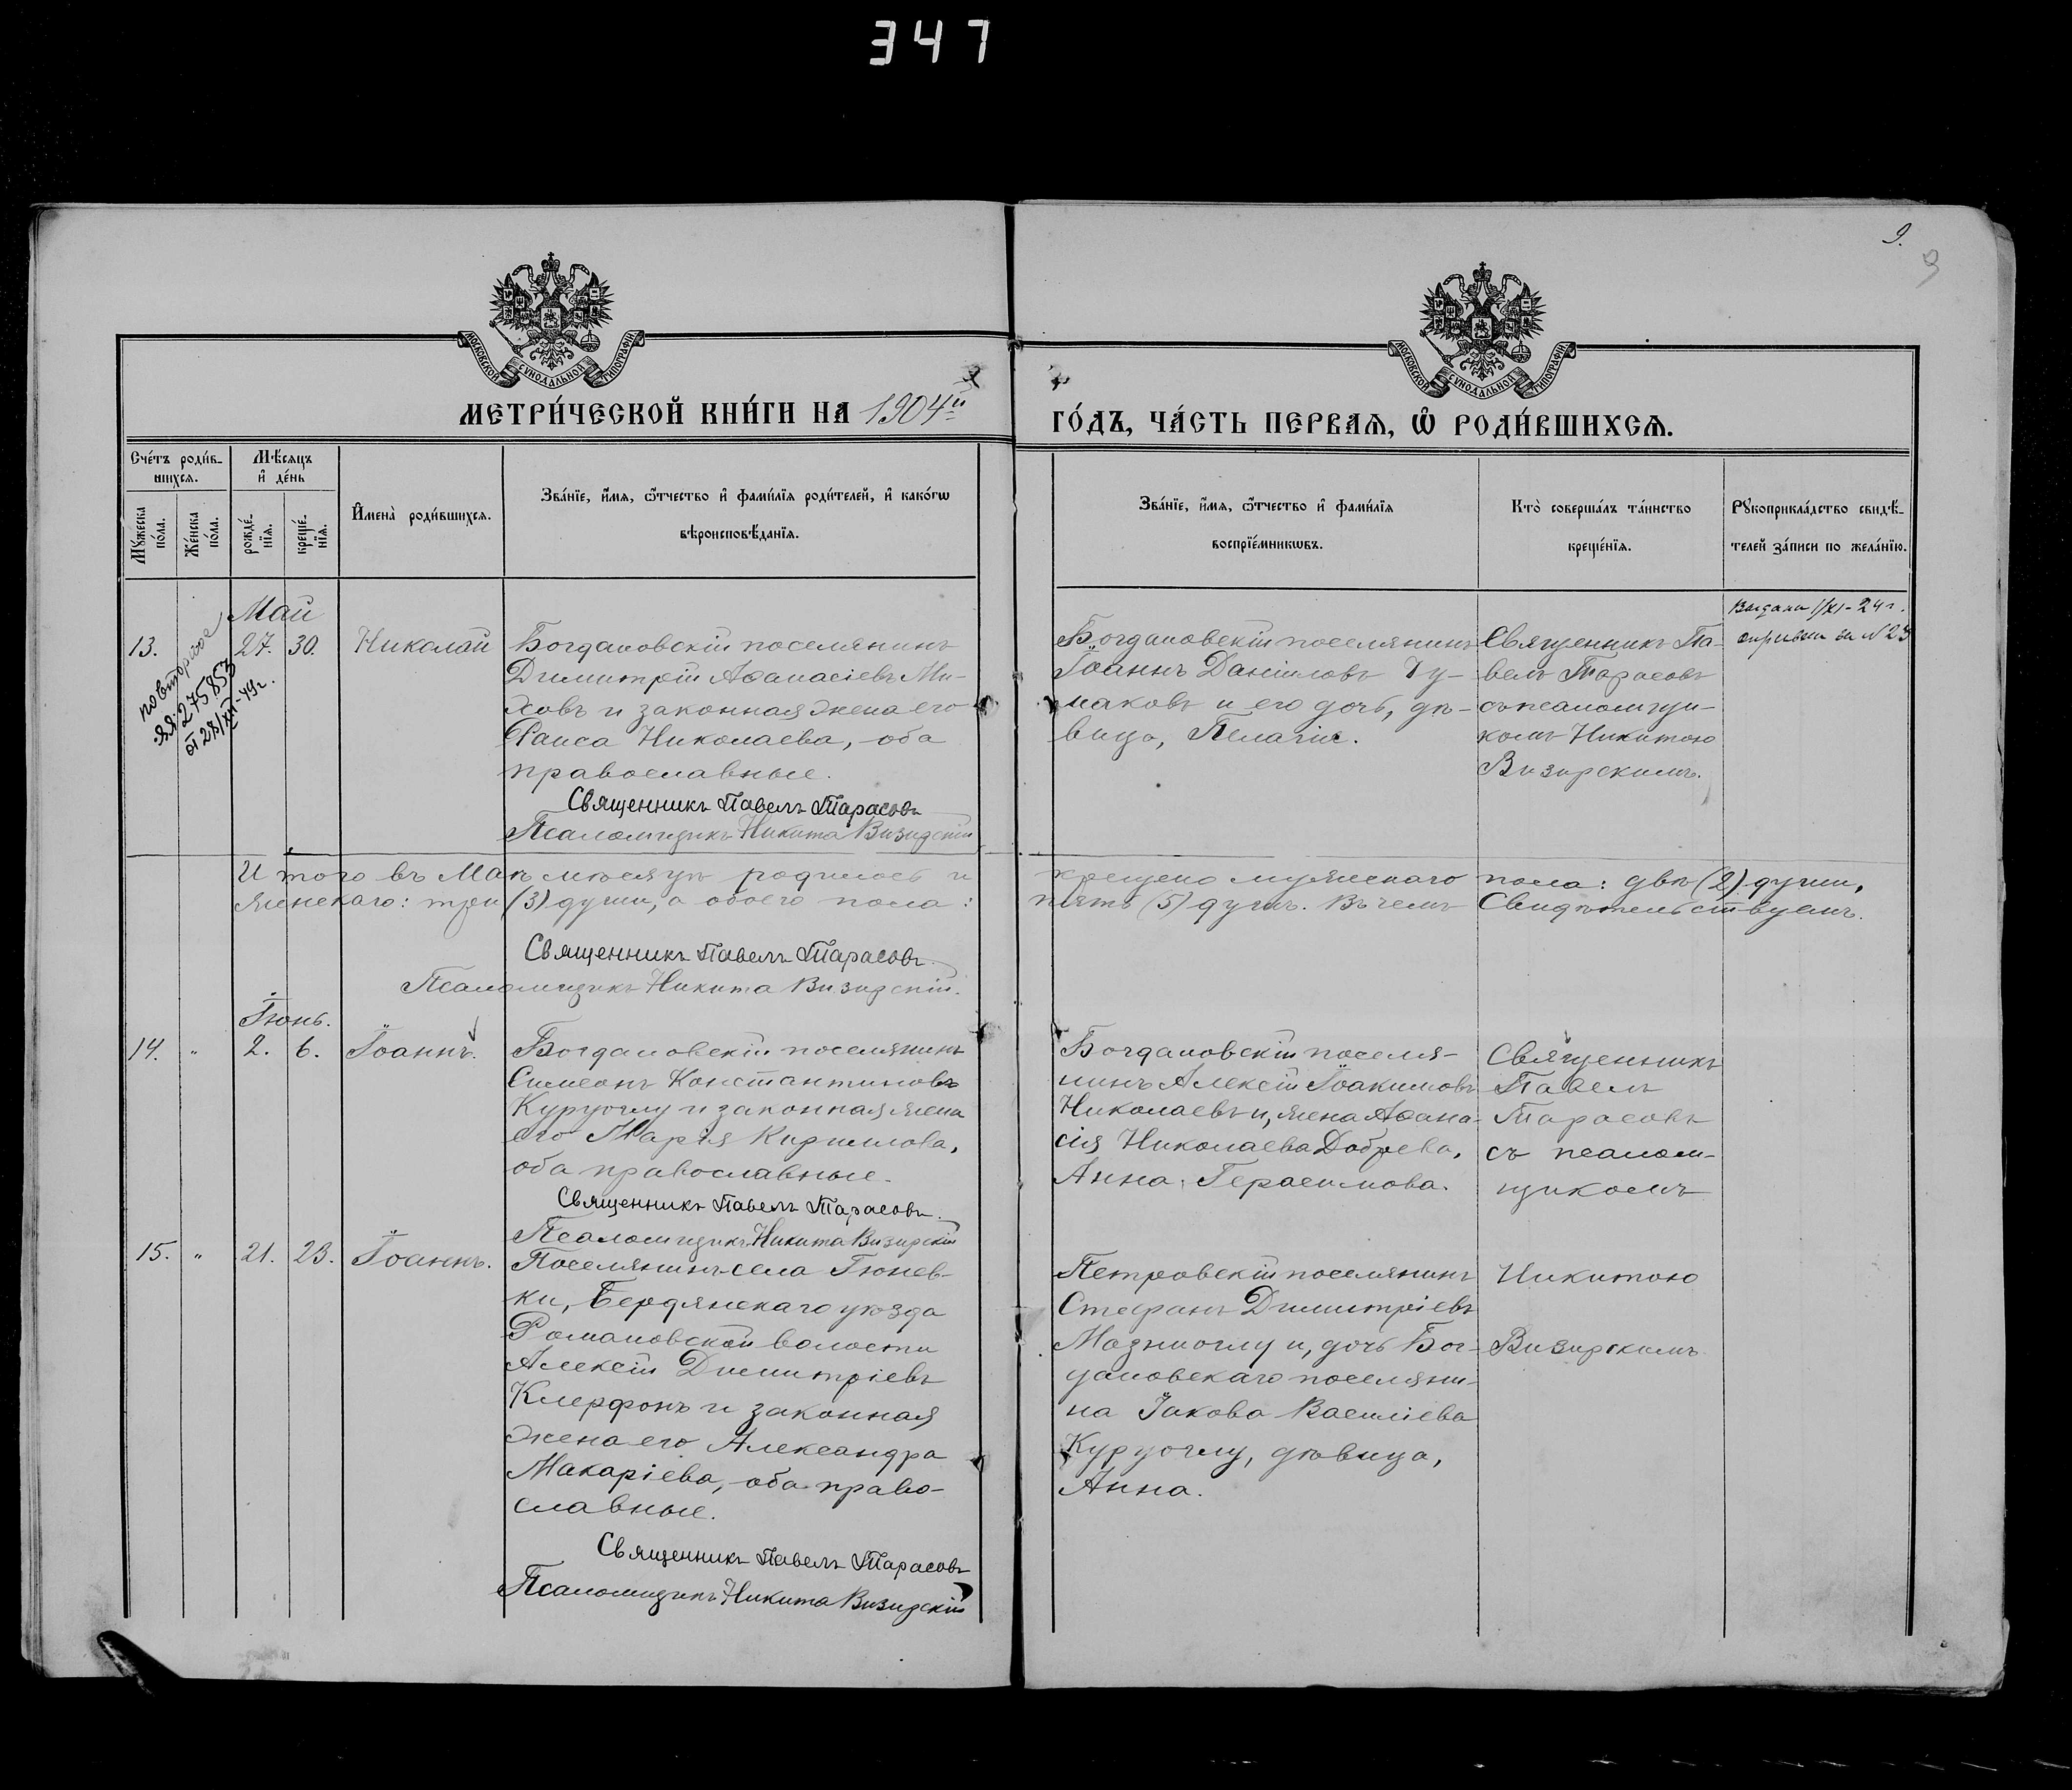 347
9.
9
МОСКОВСКОЙ СѴНОДАЛЬНОЙ ТИПОГРАФІИ
МОСКОВСКОЙ СѴНОДАЛЬНОЙ ТИПОГРАФІИ
МЕТРИ́ЧЕСКОЙ КНИ́ГИ НА 1904й
ГО́ДЪ, ЧА́СТЬ ПЕРВАѦ, Ѡ҆ РОДИ́ВШИХСѦ.
Сче́тъ роди́в-
шихсѧ.
Мꙋ́жеска по́ла.
Же́нска по́ла.
Мѣ́сѧцъ и҆ де́нь
рожде́-
нїѧ.
креще́-
нїѧ.
И҆мена̀ роди́вшихсѧ.
Зва́нїе, и҆́мѧ, ѻ҆́тчество и҆ фами́лїѧ роди́телей, и҆ како́гѡ
вѣроисповѣ́данїѧ.
Зва́нїе, и҆́мѧ, ѻ҆́тчество и҆ фами́лїѧ
воспрїе́мникѡвъ.
Кто̀ соверша́лъ та́инство
креще́нїѧ.
Рꙋкоприкла́дство свидѣ́-
телей за́писи по жела́нїю.
Май
13.
повторное
ЯЯ 275853
от 28/XII-49г.
27. 30.
Николай
Богдановскій поселянинъ
Димитрій Аѳанасіевъ Ми-
ховъ и законная жена его
Раиса Николаева, оба
православные.
Священникъ Павелъ Тарасовъ
Псаломщикъ Никита Визирскій
Богдановскій поселянинъ
Іоаннъ Даніиловъ Ду-
маковъ и его дочь, дѣ-
вица, Пелагія.
Священникъ Па-
велъ Тарасовъ
съ псаломщи-
комъ Никитою
Визирскимъ.
Выдана 1/XI-24г.
за №23
Итого въ Маѣ мѣсяцѣ родилось и крещено мужескаго пола: двѣ (2) души,
женскаго: три (3) души, а обоего пола: пять (5) душъ. Въ чемъ свидѣтельствуемъ.
Священникъ Павелъ Тарасовъ
Псаломщикъ Никита Визирскій.
Іюнь.
14. " 2. 6. Іоаннъ.
Богдановскій поселянинъ
Симеонъ Константиновъ
Куруоглу и законная жена
его Марія Кириллова,
оба православные.
Священникъ Павелъ Тарасовъ.
Псаломщикъ Никита Визирскій
Богдановскій поселя-
нинъ Алексій Іоакимовъ
Николаевъ и, жена Аѳана-
сія Николаева Добрева,
Анна Герасимова.
Священникъ
Павелъ
Тарасовъ
съ псалом-
щикомъ
15. " 21. 23. Іоаннъ.
Поселянинъ села Гюнев-
ки, Бердянскаго уѣзда
Романовской волости
Алексій Димитріевъ
Клерфонъ и законная
жена его Александра
Макаріева, оба право-
славные.
Священникъ Павелъ Тарасовъ
Псаломщикъ Никита Визирскій
Петровскій поселянинъ
Стефанъ Димитріевъ
Мазнноглу и, дочь Бог-
дановскаго поселяни-
на Іакова Василіева
Куруоглу, дѣвица,
Анна.
Никитою
Визирскимъ